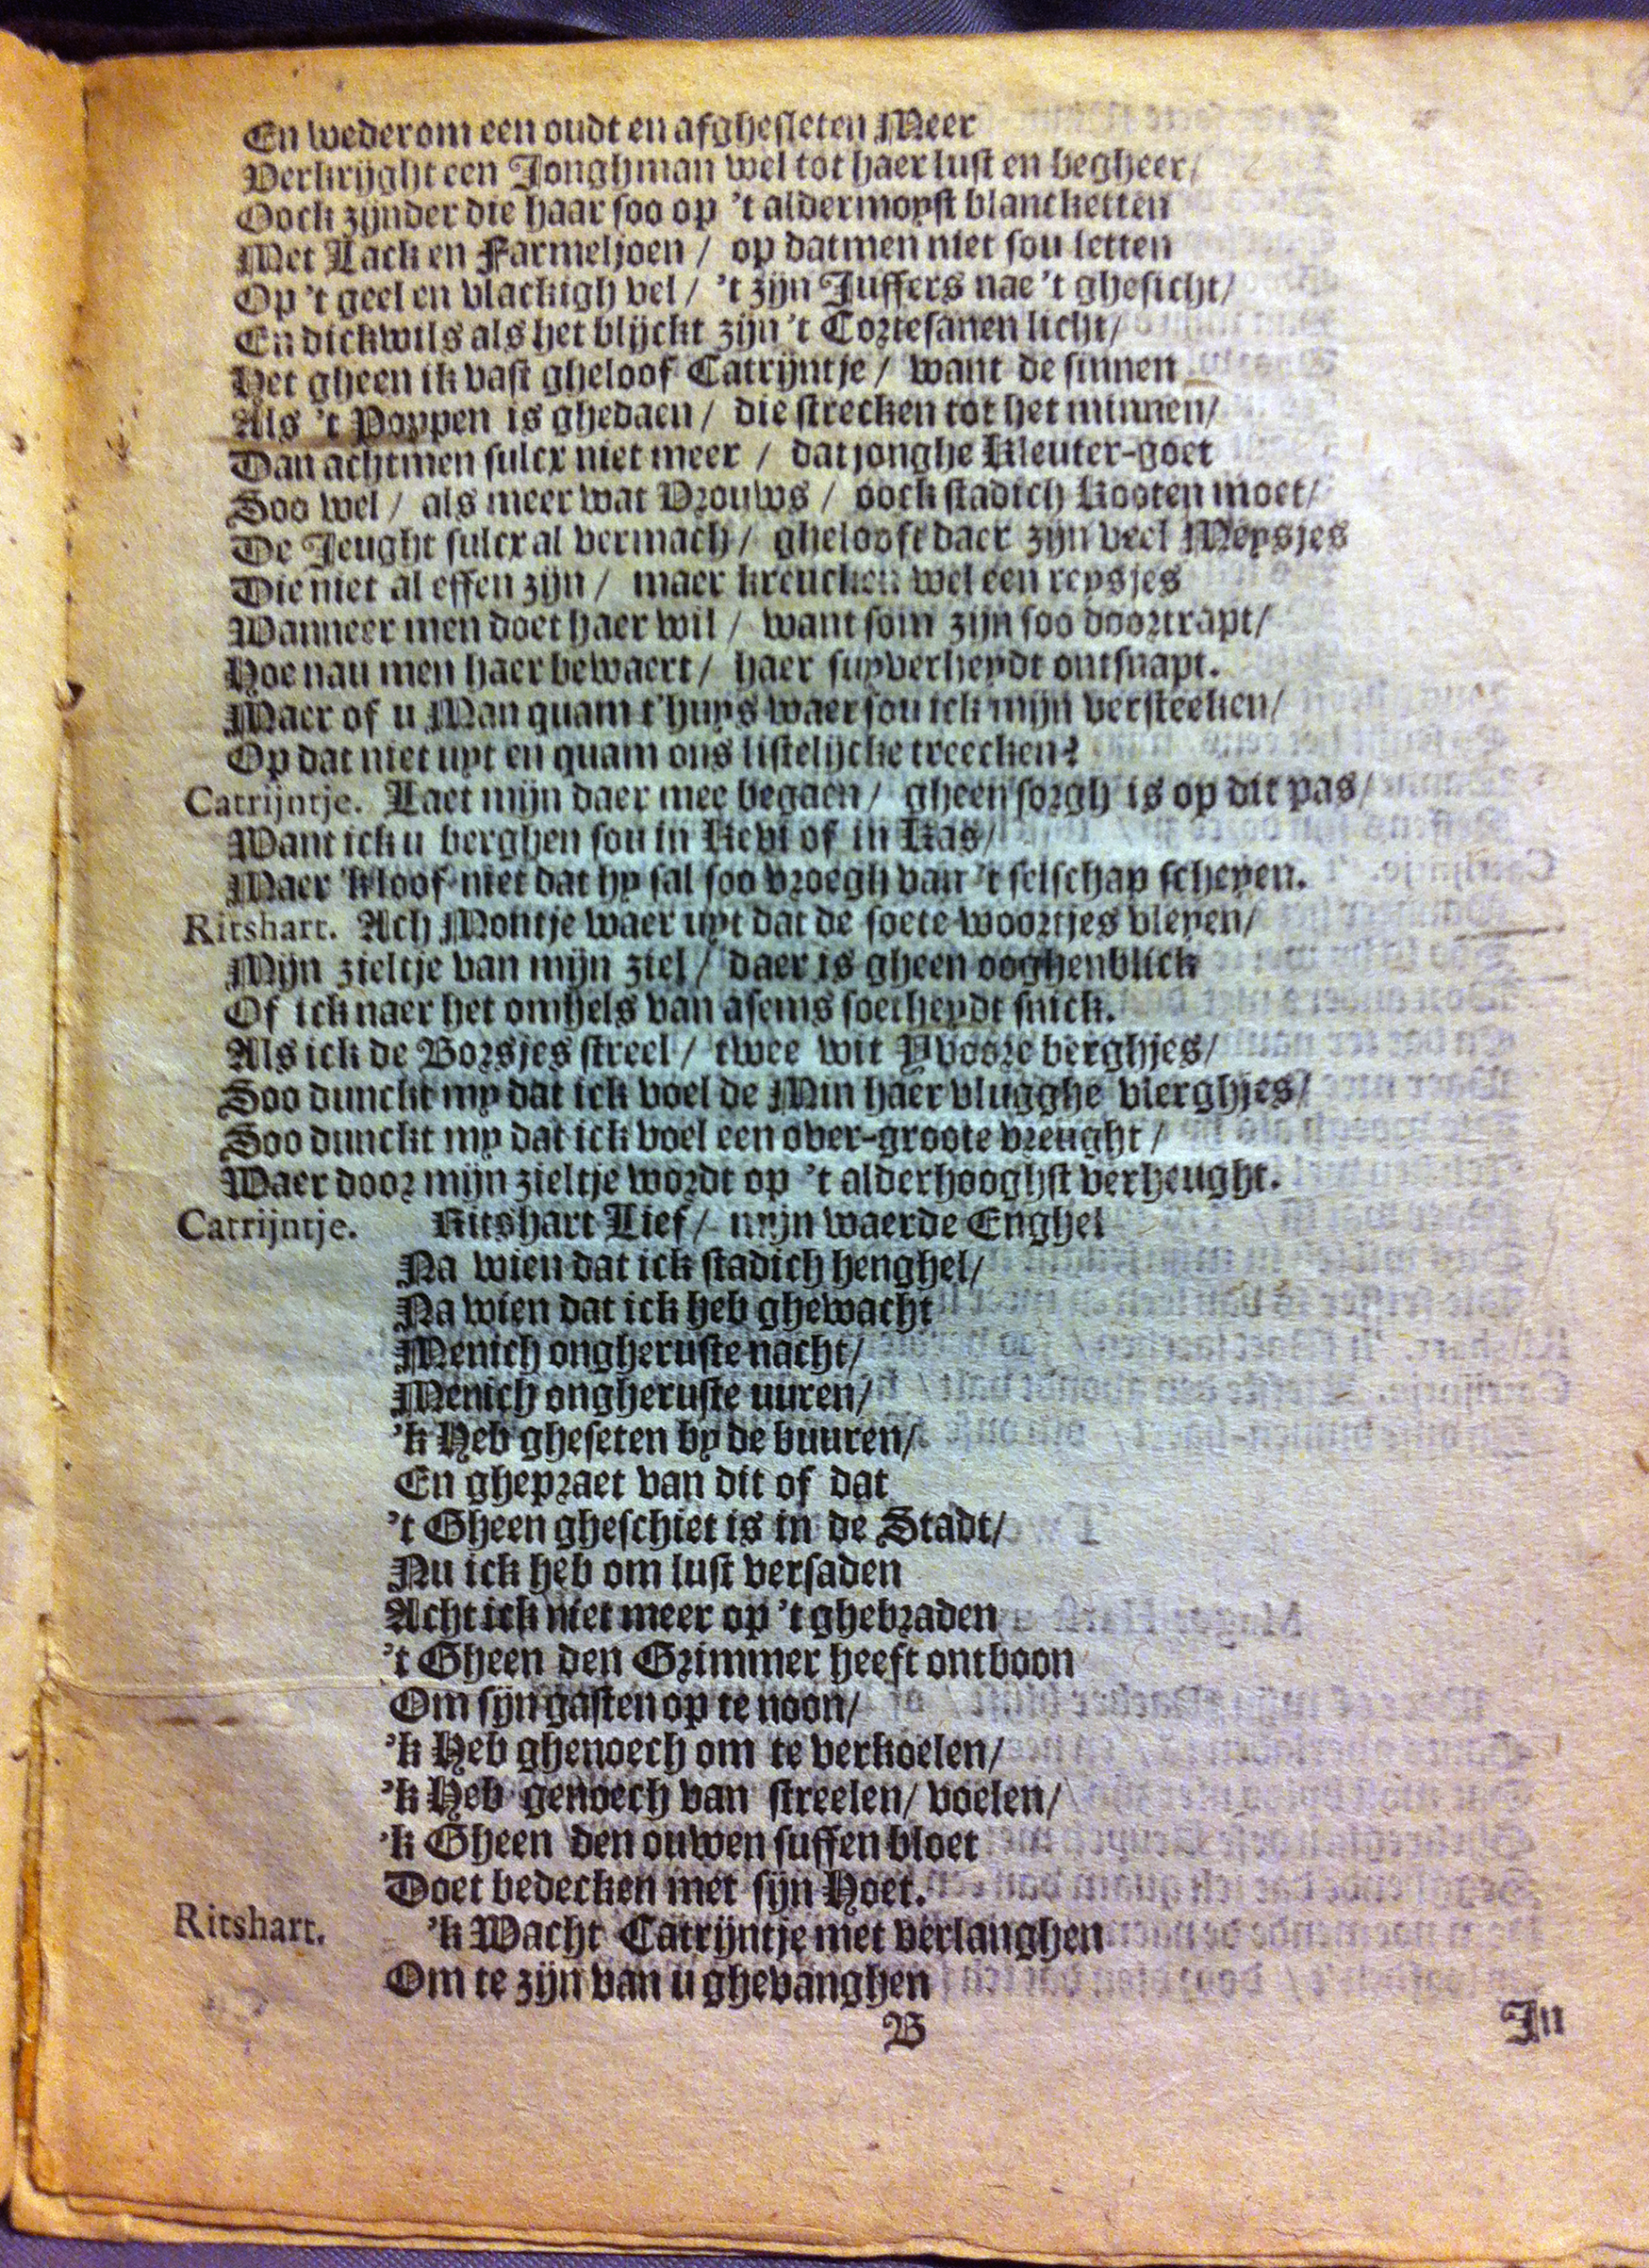 En wederom een oudt en afghesleten Meer
Verkrijght een Jonghman wel tot haer lust en begheer/
Oock zijnder die haar soo op 't aldermoyst blancketten
Met Lack en Farmeljoen / op datmen niet sou letten
Op 't geel en vlackigh vel / 't zijn Juffers nae 't ghesicht/
En dickwils als het blijckt zijn 't Cortesanen licht/
Het gheen ik vast gheloof Catrijntje / want de sinnen
Als 't Poppen is ghedaen / die strecken tot het minnen/
Dan achtmen sulcx niet meer / dat jonghe Kleuter-goet
Soo wel / als meer wat Vrouws / oock stadich Kooten moet/
De Jeught sulcx al vermach / ghelooft daer zijn veel Meysjes
Die niet al effen zijn / maer kreucken wel een reysjes
Wanneer men doet haer wil / want som zijn soo doortrapt/
Hoe nau men haer bewaert / haer suyverheydt ontsnapt.
Maer of u Man quam t'huys waer sou ick mijn versteeken/
Op dat niet uyt en quam ons listelijcke treecken?
Catrijntje. Laet mijn daer mee begaen / gheen sorgh is op dit pas/
Want ick u berghen sou in Kevi of in Kas/
Maer 'k loof niet dat hy sal soo vroegh van 't selschap scheyen.
Ritshart. Ach Montje waer uyt dat de soete woortjes vleyen/
Mijn zieltje van mijn ziel / daer is gheen ooghenblick
Of ick naer het omhels van asems soetheydt snick.
Als ick de Borsjes streel / twee wit Yvoore berghjes/
Soo dunckt my dat ick voel de Min haer vlugghe vlerghjes/
Soo dunckt my dat ick voel een over-groote vreught /
Waer door mijn zieltje wordt op 't alderhooghst verheught.
Catrijntje. Ritshart Lief / mijn waerde Enghel
Na wien dat ick stadich henghel/
Na wien dat ick heb ghewacht
Menich ongheruste nacht/
Menich ongheruste uuren/
'k Heb gheseten by de buuren/
En ghepraet van dit of dat
't Gheen gheschiet is in de Stadt/
Nu ick heb om lust versaden
Acht ick niet meer op 't ghebraden
't Gheen den Grimmer heeft ontboon
Om sijn gasten op te noon/
'k Heb ghenoech om te verkoelen/
'k Heb genoech van streelen/ voelen/
'k Gheen den ouwen suffen bloet
Doet bedecken met sijn Hoet.
Ritshart. 'k Wacht Catrijntje met verlanghen
Om te zijn van u ghevanghen
B
In